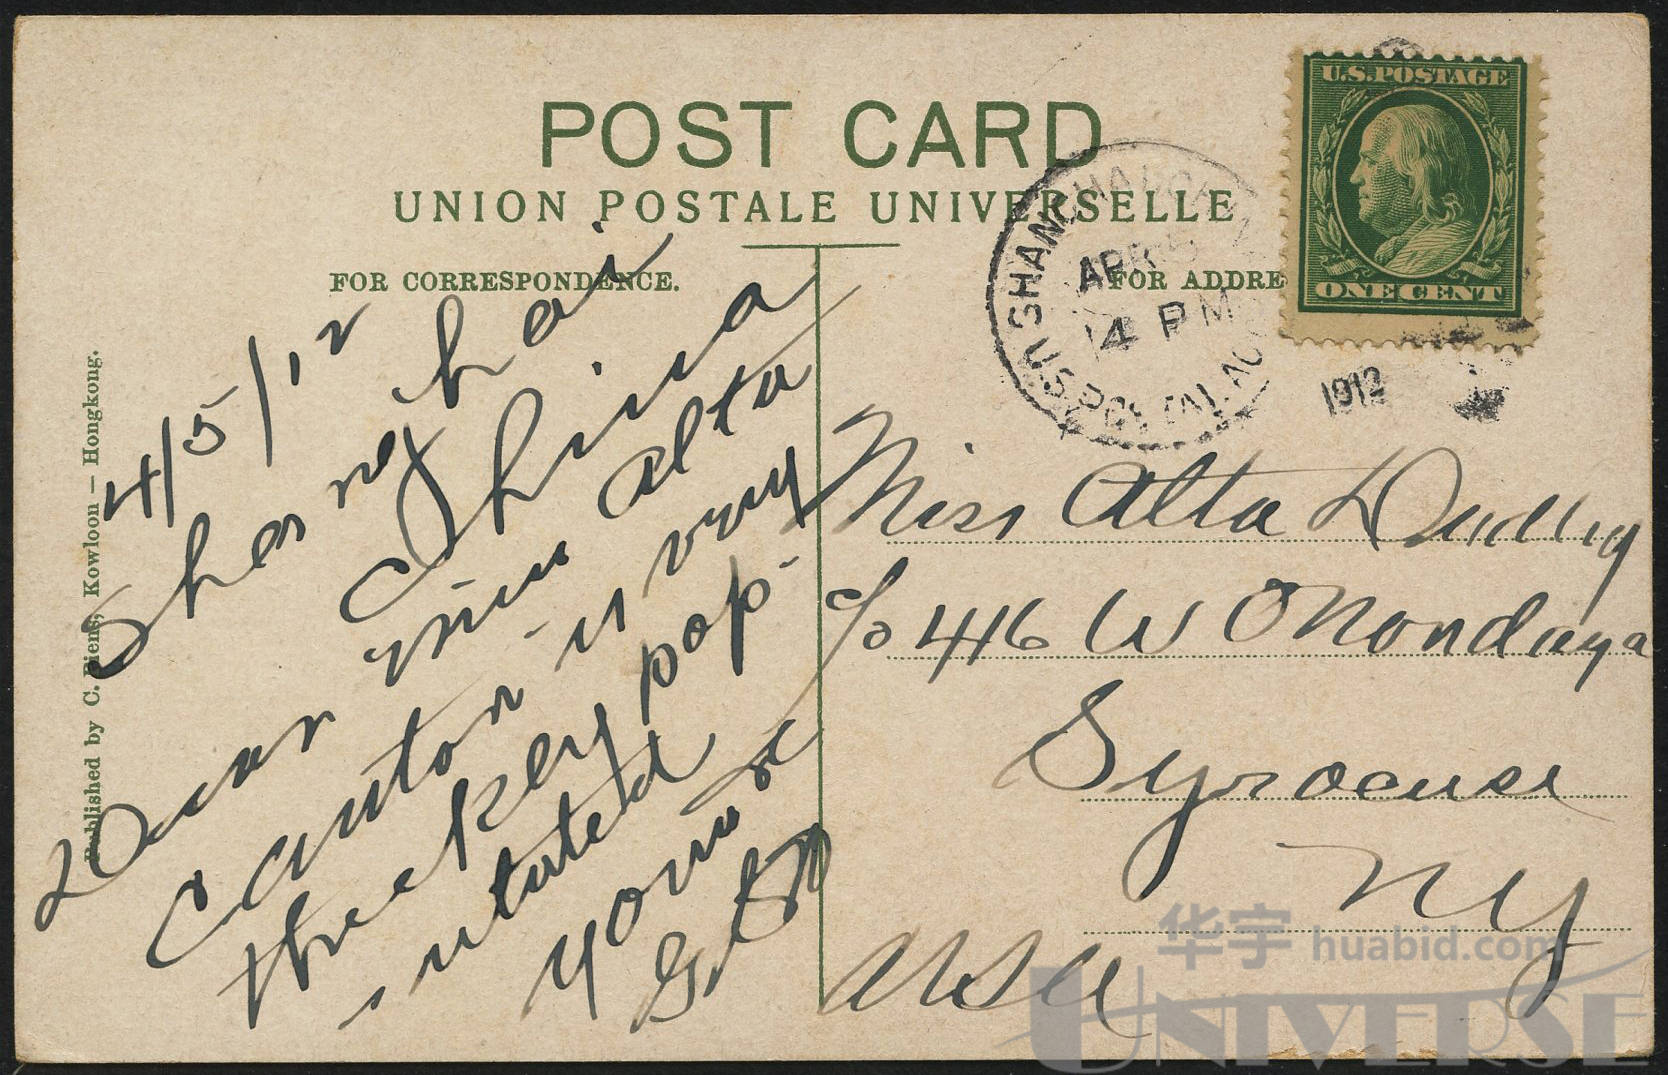 POST CARD
UNION POSTALE UNIVERSELLE
FOR CORRESPONDENCE.
FOR ADDRE
Published by C. Diens, Kowloon — Hongkong.
4/5/12
Shanghai
China
Dear miss Alta
Canton is very
thickly pop-
ulated
yours
Miss Alta Dudley
c/o 416 W Onondaga
Syracuse
NY
USA
U.S. POSTAGE
ONE CENT
SHANGHAI
APR 5
4 PM
1912
U.S. POSTAL AG
华宇 huabid.com
UNIVERSE